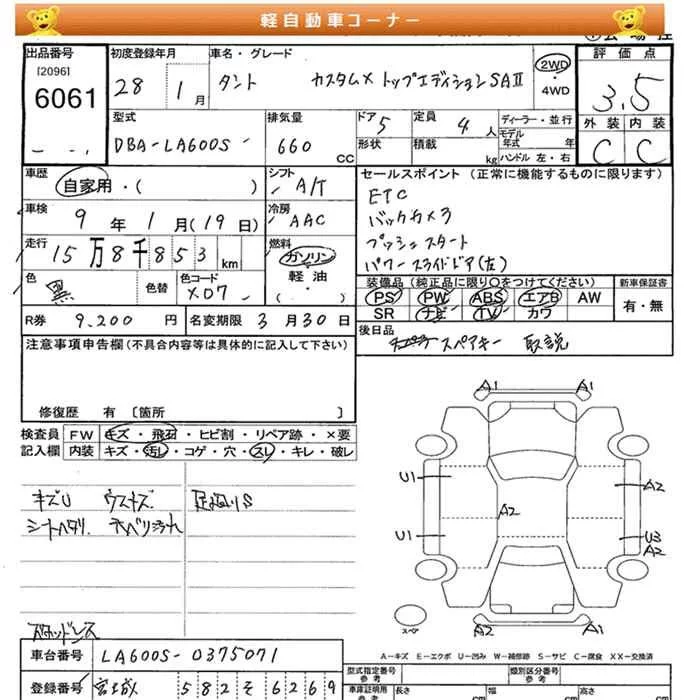 軽自動車コーナー
出品番号
[2096]
6061
初度登録年月
28 1月
車名・グレード
タント カスタムX トップエディションSAⅡ
2WD
・
4WD
評価点
3.5
外装 内装
C C
型式
DBA-LA600S
排気量
660 CC
ドア 5
形状
定員 4人
積載 kg
ディーラー・並行
モデル
年式 年
ハンドル 左・右
車歴
自家用・( )
シフト
A/T
車検
9年 1月(19日)
冷房
AAC
走行
15万8千853km
燃料
ガソリン
軽油
( ・ )
色
黒
色替
色コード
X07
R券 9,200円
名変期限 3月30日
セールスポイント (正常に機能するものに限ります)
ETC
バックカメラ
プッシュスタート
パワースライドドア(左)
装備品 (純正品に限り○をつけてください)
PS PW ABS エアB AW
SR ナビ TV カワ
新車保証書
有・無
後日品
スペアキー 取説
注意事項申告欄(不具合内容等は具体的に記入して下さい)
修復歴 有 〔箇所 〕
検査員
記入欄
FW キズ・飛石・ヒビ割・リペア跡・×要
内装 キズ・汚レ・コゲ・穴・スレ・キレ・破レ
キズU ウスキズ
シートヘタリ
足廻りS
A1 A1
U1 A2
A2
U1 U3
A2
スペア
A2 U1
A-キズ E-エクボ U-凹み W-補修跡 S-サビ C-腐食 XX-交換済
車台番号 LA600S-0375071
登録番号 宮城 582 そ 6269
型式指定番号
参考
類別区分番号
参考
車庫証明用
参考
長さ cm
幅 cm
高さ cm